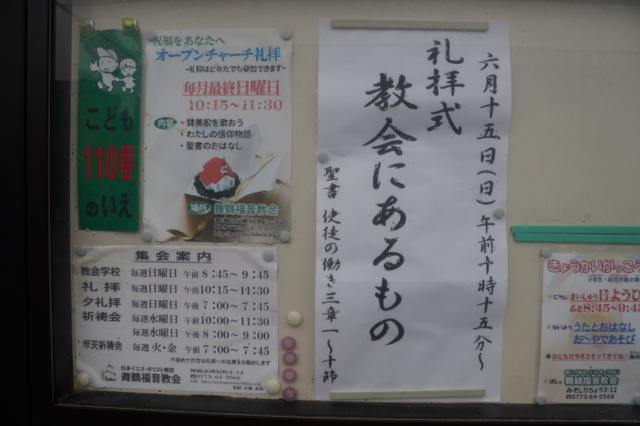 こども
110番
のいえ
祝福をあなたへ
オープンチャーチ礼拝
-礼拝はどなたでも参加できます-
毎月最終日曜日
10:15~11:30
内容
・賛美歌を歌おう
・わたしの信仰物語
・聖書のおはなし
場所
舞鶴福音教会
六月十五日(日)午前十時十五分~
礼拝式
教会にあるもの
聖書 使徒の働き三章一~十節
集会案内
教会学校 毎週日曜日 午前 8:45~9:45
礼拝 毎週日曜日 午前 10:15~11:30
夕礼拝 毎週日曜日 午後 7:00~7:45
祈祷会 毎週水曜日 午前 10:00~11:30
毎週水曜日 午後 8:00~9:00
早天祈祷会 毎週火・金 午前 7:00~7:45
日本イエス・キリスト教団
舞鶴福音教会
☎0773-64-5568
きょうかいがっこう
まいしゅう日ようび
あさ8:45~9:45
うたとおはなし
おへやであそび
おともだちをさそってきてね!
ばしょ
舞鶴福音教会
みぞしりちょう3-12
☎0773-64-5568